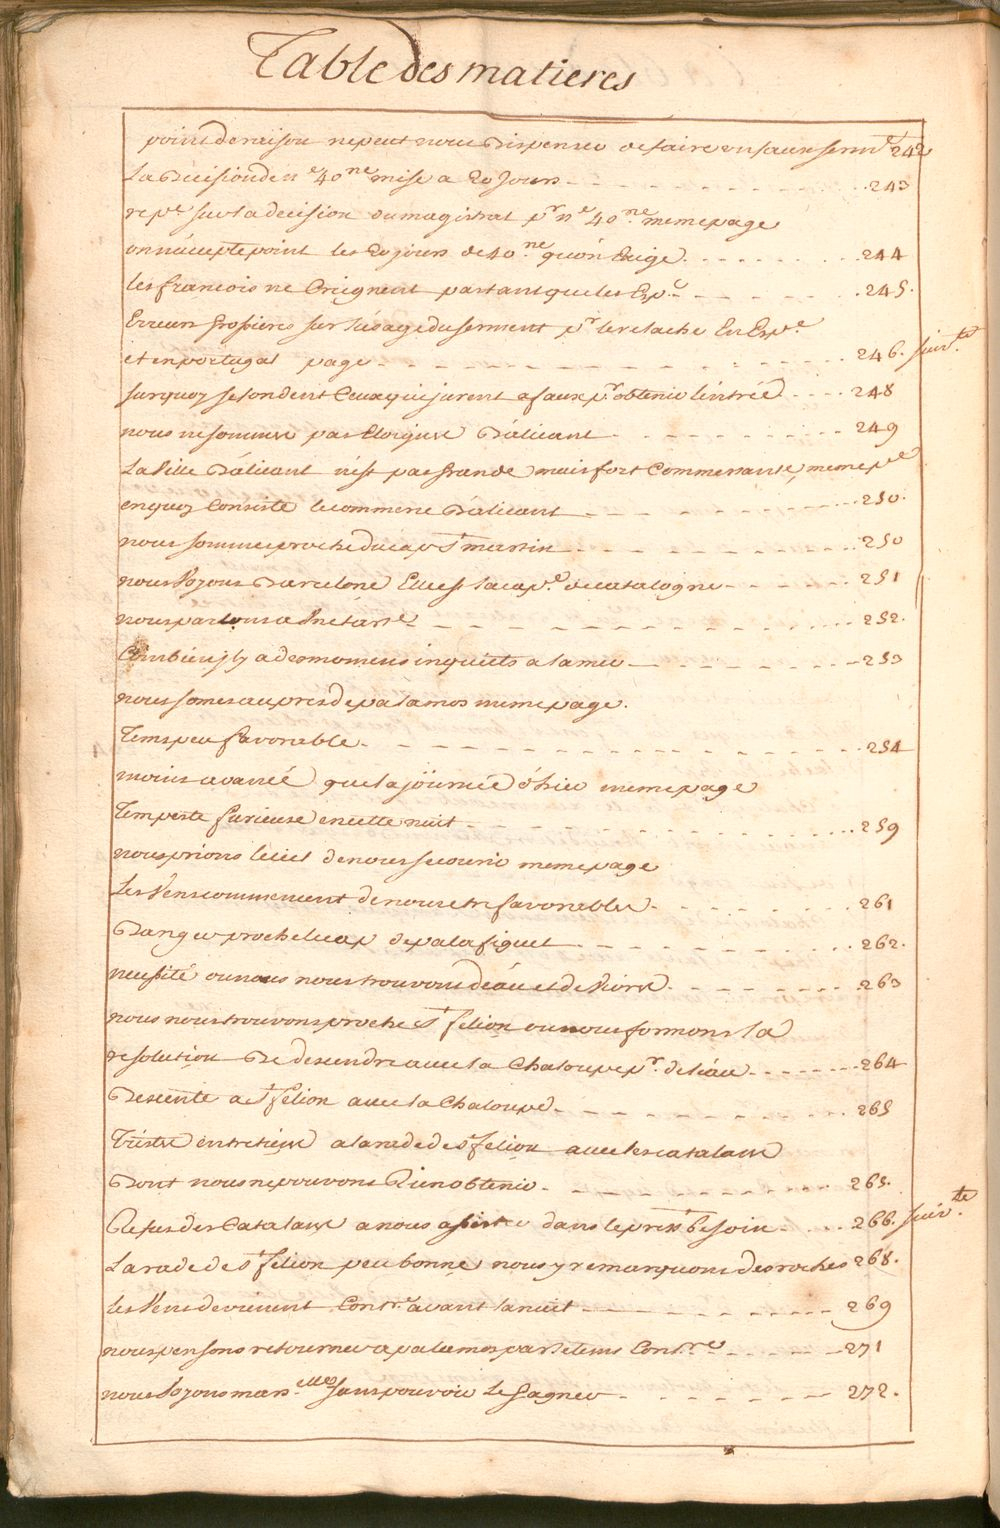 Table des matieres
point de raison ne peut nous Dispenser de faire un faux serm.t 242
La Décision de n.e 40.ne mise a 20 Jours - - - - 243
rep.e sur la decision du magistrat p.r n.e 40.ne meme page
on n'accepte point les 20 jours de 40.ne qu'on Exige - - - - 244
les francois ne Craignent pas tant que les Esp.l - - - - 245.
Erreurs Grosieres sur l'usage du serment p.r le relache En Esp.e
et en portugal page - - - - 246. suiv.te
sur quoy se fondent Ceux qui jurent a faux p.r obtenir l'entrée - - - - 248
nous ne sommes pas Eloignes D'alicant - - - - 249
La Ville D'alicant n'est pas Grande mais fort Commersante, meme p.e
en quoy Consiste le commerce D'alicant - - - - 250.
nous sommes proche du cap S.t martin - - - - 250
nous Voyons Barcelone Elle est la cap.e de catalogne - - - - 251
nous parlons a Une tart.e - - - - 252.
Combien jl y a des momens inquiets a la mer - - - - 253
nous somes aupres de palamos meme page.
Tems peu favorable - - - - 254
moins avancé que la journée d'hier meme page
Tempeste furieuse en cette nuit - - - - 259
nous prions le ciel de nous secourir meme page
Les Vens commencent de nous etre favorables - - - - 261
Danger proche le cap de palafiguel - - - - 262.
necessité ou nous nous trouvons d'eau et de Vivres - - - - 263
nous nous trouvons proche S.t felion ou nous formons la
resolution De descendre avec la Chaloupe p.r de l'eau - - - - 264
Descente a S.t felion avec la Chaloupe - - - - 265
Tristes entretiens a la rade de S.t felion avec les catalans
Dont nous ne pouvons Rien obtenir - - - - 265.
Refus des Catalans a nous assister dans le press.t besoin - - - - 266. suiv.te
La rade de S.t felion peu bonne, nous y remarquons des roches 268.
les Vens devienent Contr.e avant la nuit - - - - 269
nous pensons retourner a palamos par le tems Contr.e - - - - 271
nous Voyons mars.elles sans pouvoir Le Gagner - - - - 272.